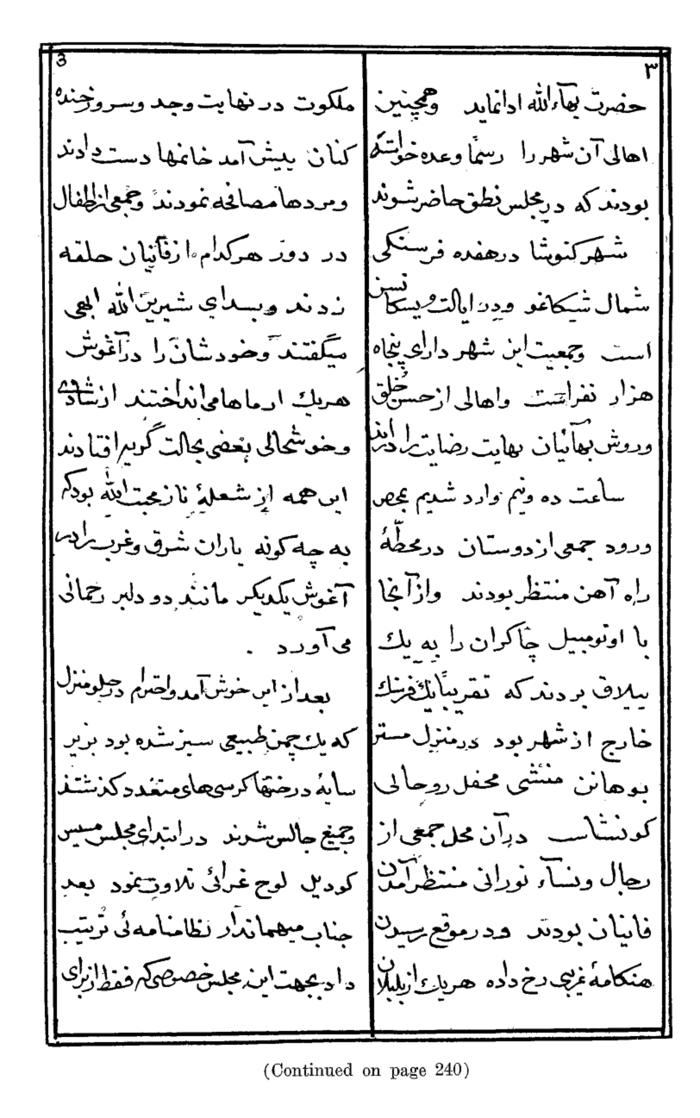 ۳
حضرت بهاءالله ادا نماید وهمچنین
اهالی آن شهر را رسمًا وعده خواسته
بودند که در مجلس نطق حاضر شوند
شهر کنوشا در هفده فرسنکی
شمال شیکاغو ودر ایالت ویسکانسن
است وجمعیت این شهر دارای پنجاه
هزار نفر است واهالی از حسن خُلق
وروش بهائیان نهایت رضایت را دارند
ساعت ده ونیم وارد شدیم بمحض
ورود جمعی از دوستان در محطّهٔ
راه آهن منتظر بودند وازآنجا
با اوتومبیل چاکران را به یك
ییلاق بردند که تقریباً یك فرسنك
خارج از شهر بود درمنزل مستر
بوهانن منشی محفل روحانی
کونشاست درآن محل جمعی از
رجال ونسآء نورانی منتظر آمدن
فانیان بودند ودر موقع رسیدن
هنکامهٔ غریبی رخ داده هریك از بلبلان
3
ملکوت در نهایت وجد وسرور خنده
کنان پیش آمد خانمها دست دادند
ومردها مصافحه نمودند وجمعی از اطفال
در دور هر کدام از فانیان حلقه
زدند وبصدای شیرین الله ابهی
میگفتند وخودشان را در آغوش
هریك از ماها می انداختند از شادی
وخوشحالی بعضی بحالت گریه افتادند
این همه از شعلهٔ نار محبت الله بود که
به چه کونه یاران شرق وغرب را در
آغوش یکدیکر مانند دو دلبر رحمانی
می آورد .
بعد از این خوش آمد واحترام در جلو منزل
که یك چمن طبیعی سبز شده بود بزیر
سایهٔ درختها کرسی های متعدد کذشتند
وجمیع جالس شدند در ابتدای مجلس مسیس
کودیل لوح غرائی تلاوت نمود بعد
جناب میهماندار نظامنامه ئی ترتیب
داد بجهت این مجلس خصوصی که فقط از برای
(Continued on page 240)